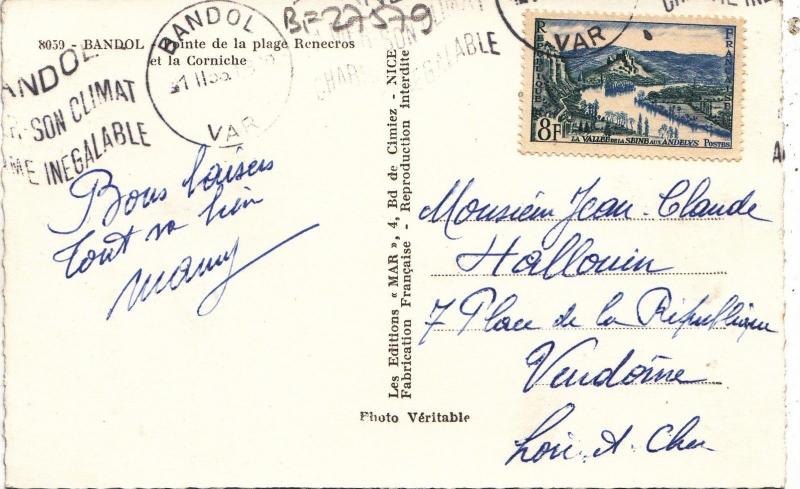 8059 - BANDOL - Pointe de la plage Renecros
et la Corniche
BANDOL
VAR
BF27579
ANDOL
SON CLIMAT
ME INEGALABLE
SON CLIMAT
CHARME INEGALABLE
VAR
REPUBLIQUE
FRANÇAISE
8F
LA VALLÉE DE LA SEINE AUX ANDELYS POSTES
Bons baisers
Tout va bien
Mamy
Les Editions « MAR », 4, Bd de Cimiez - NICE
Fabrication Française - Reproduction interdite
Photo Véritable
Monsieur Jean-Claude
Hallouin
7 Place de la République
Vendôme
Loir-et-Cher